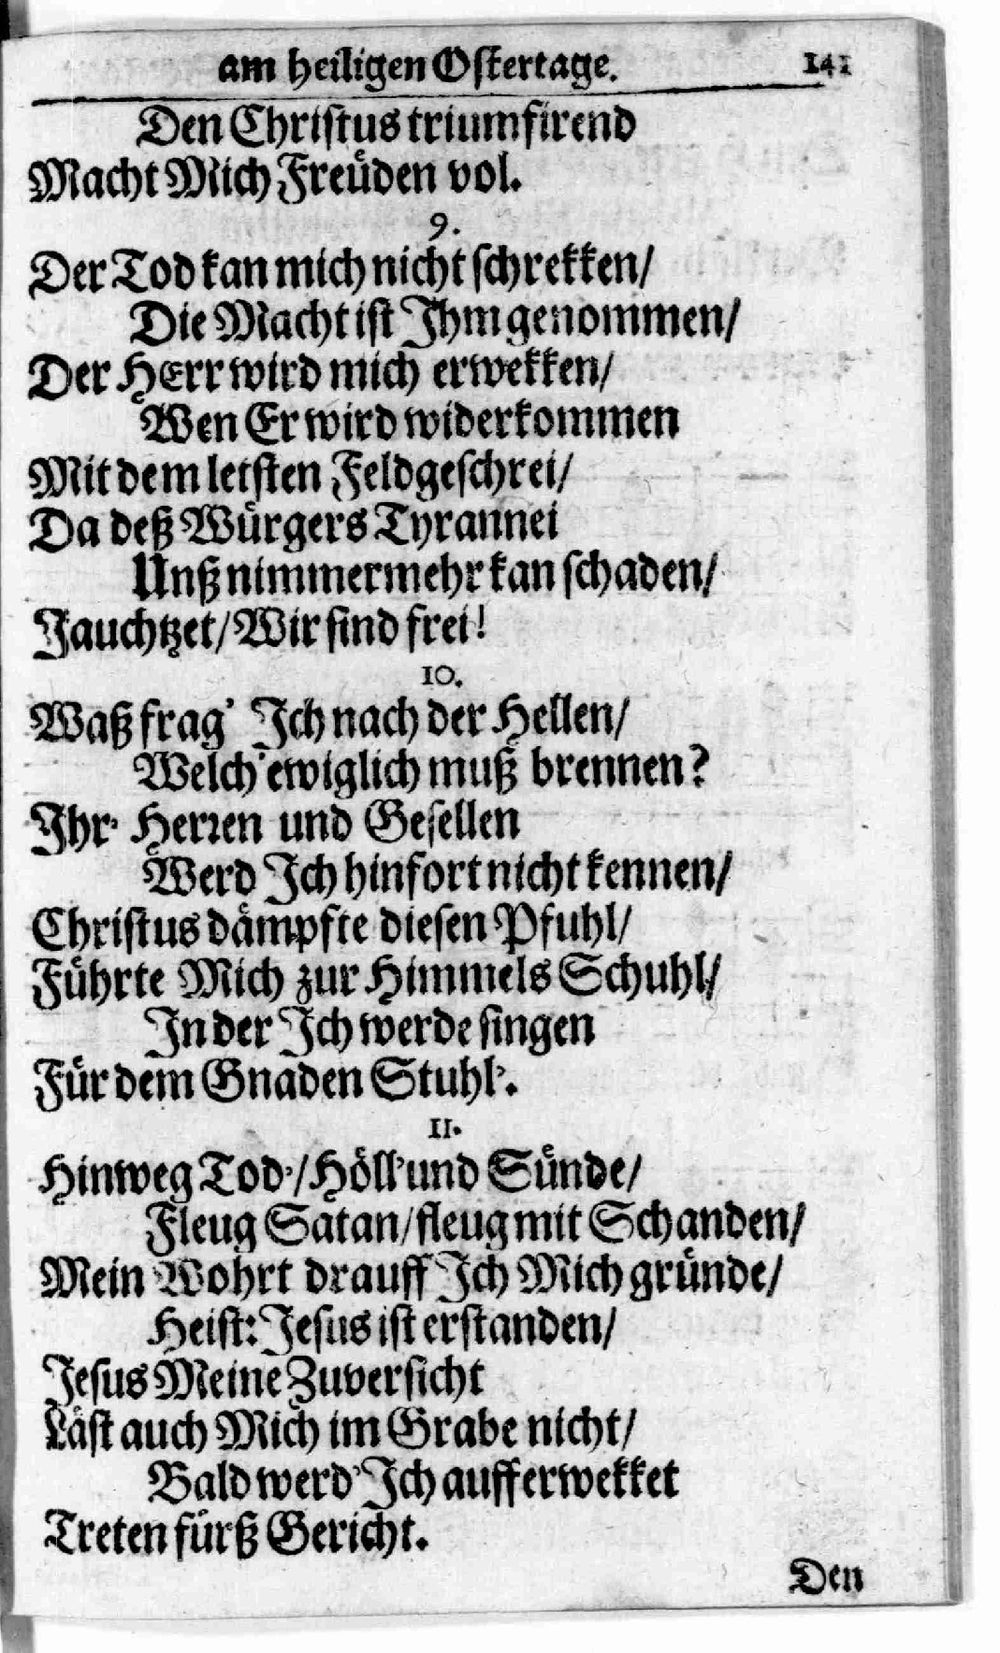 am heiligen Ostertage. 141
Den Christus triumfirend
Macht Mich Freüden vol.
9.
Der Tod kan mich nicht schrekken/
Die Macht ist Ihm genommen/
Der HErr wird mich erwekken/
Wen Er wird widerkommen
Mit dem letsten Feldgeschrei/
Da deß Würgers Tyrannei
Unß nimmermehr kan schaden/
Jauchtzet/ Wir sind frei!
10.
Waß frag' Ich nach der Hellen/
Welch' ewiglich muß brennen?
Ihr' Herren und Gesellen
Werd Ich hinfort nicht kennen/
Christus dämpfte diesen Pfuhl/
Führte Mich zur Himmels Schuhl/
In der Ich werde singen
Für dem Gnaden Stuhl'.
11.
Hinweg Tod'/ Höll' und Sünde/
Fleug Satan/ fleug mit Schanden/
Mein Wohrt drauff Ich Mich gründe/
Heist: Jesus ist erstanden/
Jesus Meine Zuversicht
Läst auch Mich im Grabe nicht/
Bald werd' Ich aufferwekket
Treten fürß Gericht.
Den